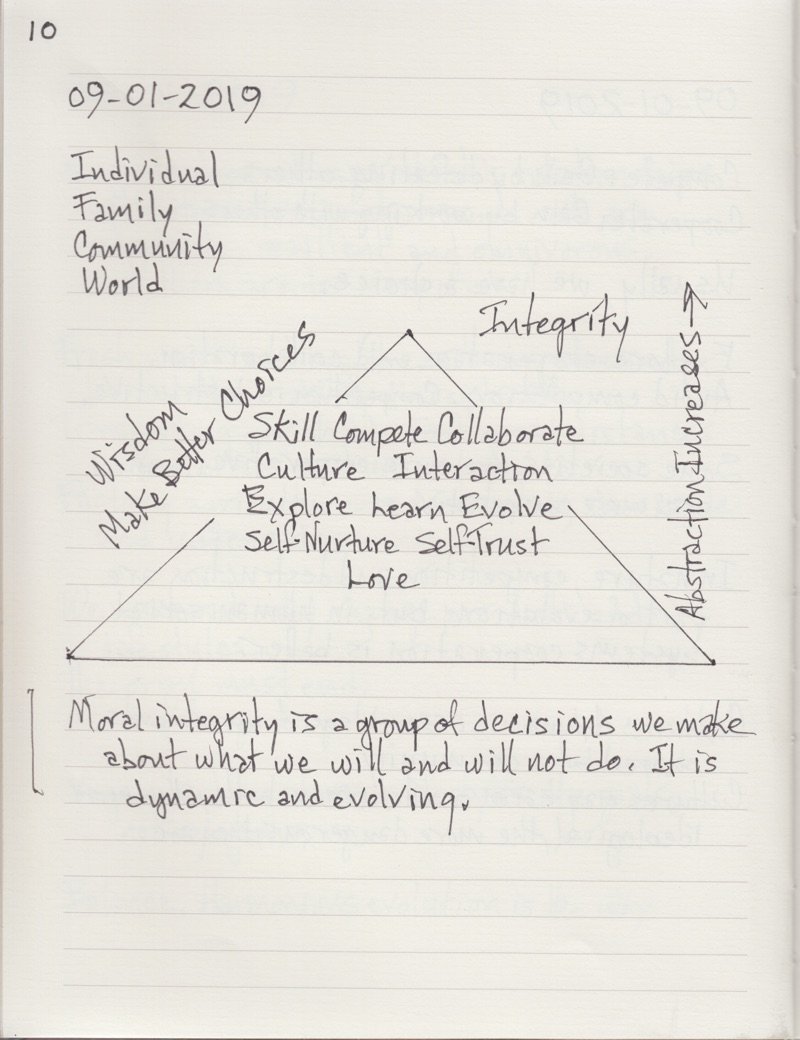 10
09-01-2019
Individual
Family
Community
World
Integrity
Wisdom
Make Better Choices
Abstraction Increases
Skill Compete Collaborate
Culture Interaction
Explore Learn Evolve
Self-Nurture Self-Trust
Love
Moral integrity is a group of decisions we make
about what we will and will not do. It is
dynamic and evolving.